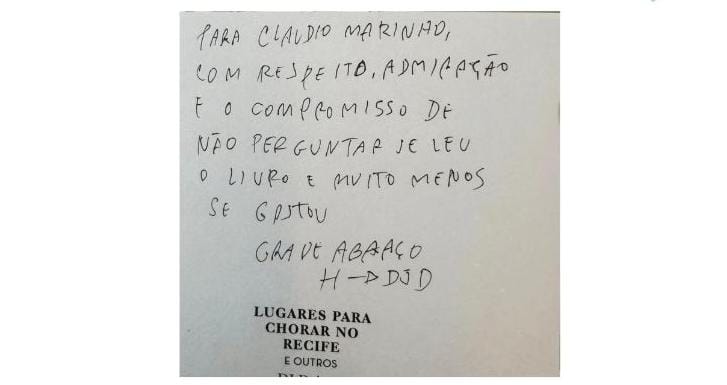 PARA CLAUDIO MARINHO,
COM RESPEITO, ADMIRAÇÃO
E O COMPROMISSO DE
NÃO PERGUNTAR SE LEU
O LIVRO E MUITO MENOS
SE GOSTOU
ABRAÇO
LUGARES PARA
CHORAR NO
RECIFE
E OUTROS